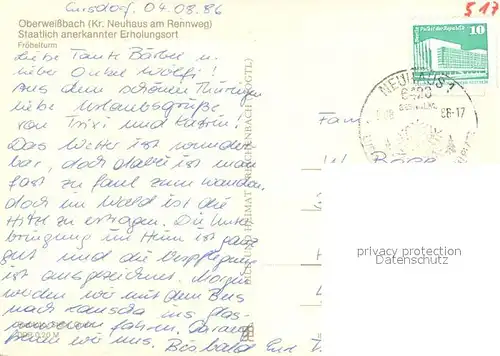 Cursdorf, 04.08.86
517
Oberweißbach (Kr. Neuhaus am Rennweg)
Staatlich anerkannter Erholungsort
Fröbelturm
10
NEUHAUS 1
6420
86-17
Liebe Tante Bärbel u.
lieber Onkel Wölfi!
Aus dem schönen Thüringen
liebe Urlaubsgrüße
von Trixi und Katrin!
Das Wetter ist wunder-
bar, doch dabei ist man
fast zu faul zum wandern,
doch im Wald ist die
Hitze zu ertragen. Die Unter-
bringung im Heim ist ganz
gut und die Verpflegung
ist ausgezeichnet. Morgen
werden wir mit dem Bus
nach Lauscha ins Glas-
museum fahren. Darauf
freuen wir uns. Bis bald
Fam.
W.
BILD UND HEIMAT REICHENBACH (VOGTL)
privacy protection
DATENSCHUTZ